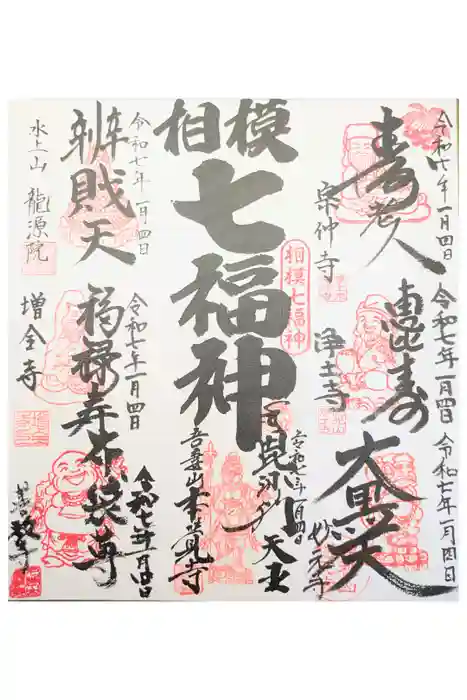 相模
七福神
相模七福神
令和七年一月四日
寿老人
宗仲寺
令和七年一月四日
恵比寿
浄土寺
令和七年一月四日
大黒天
妙元寺
令和七年一月四日
毘沙門天王
吾妻山 本覚寺
令和七年一月四日
辨財天
水上山 龍源院
令和七年一月四日
福禄寿
増全寺
令和七年一月四日
布袋尊